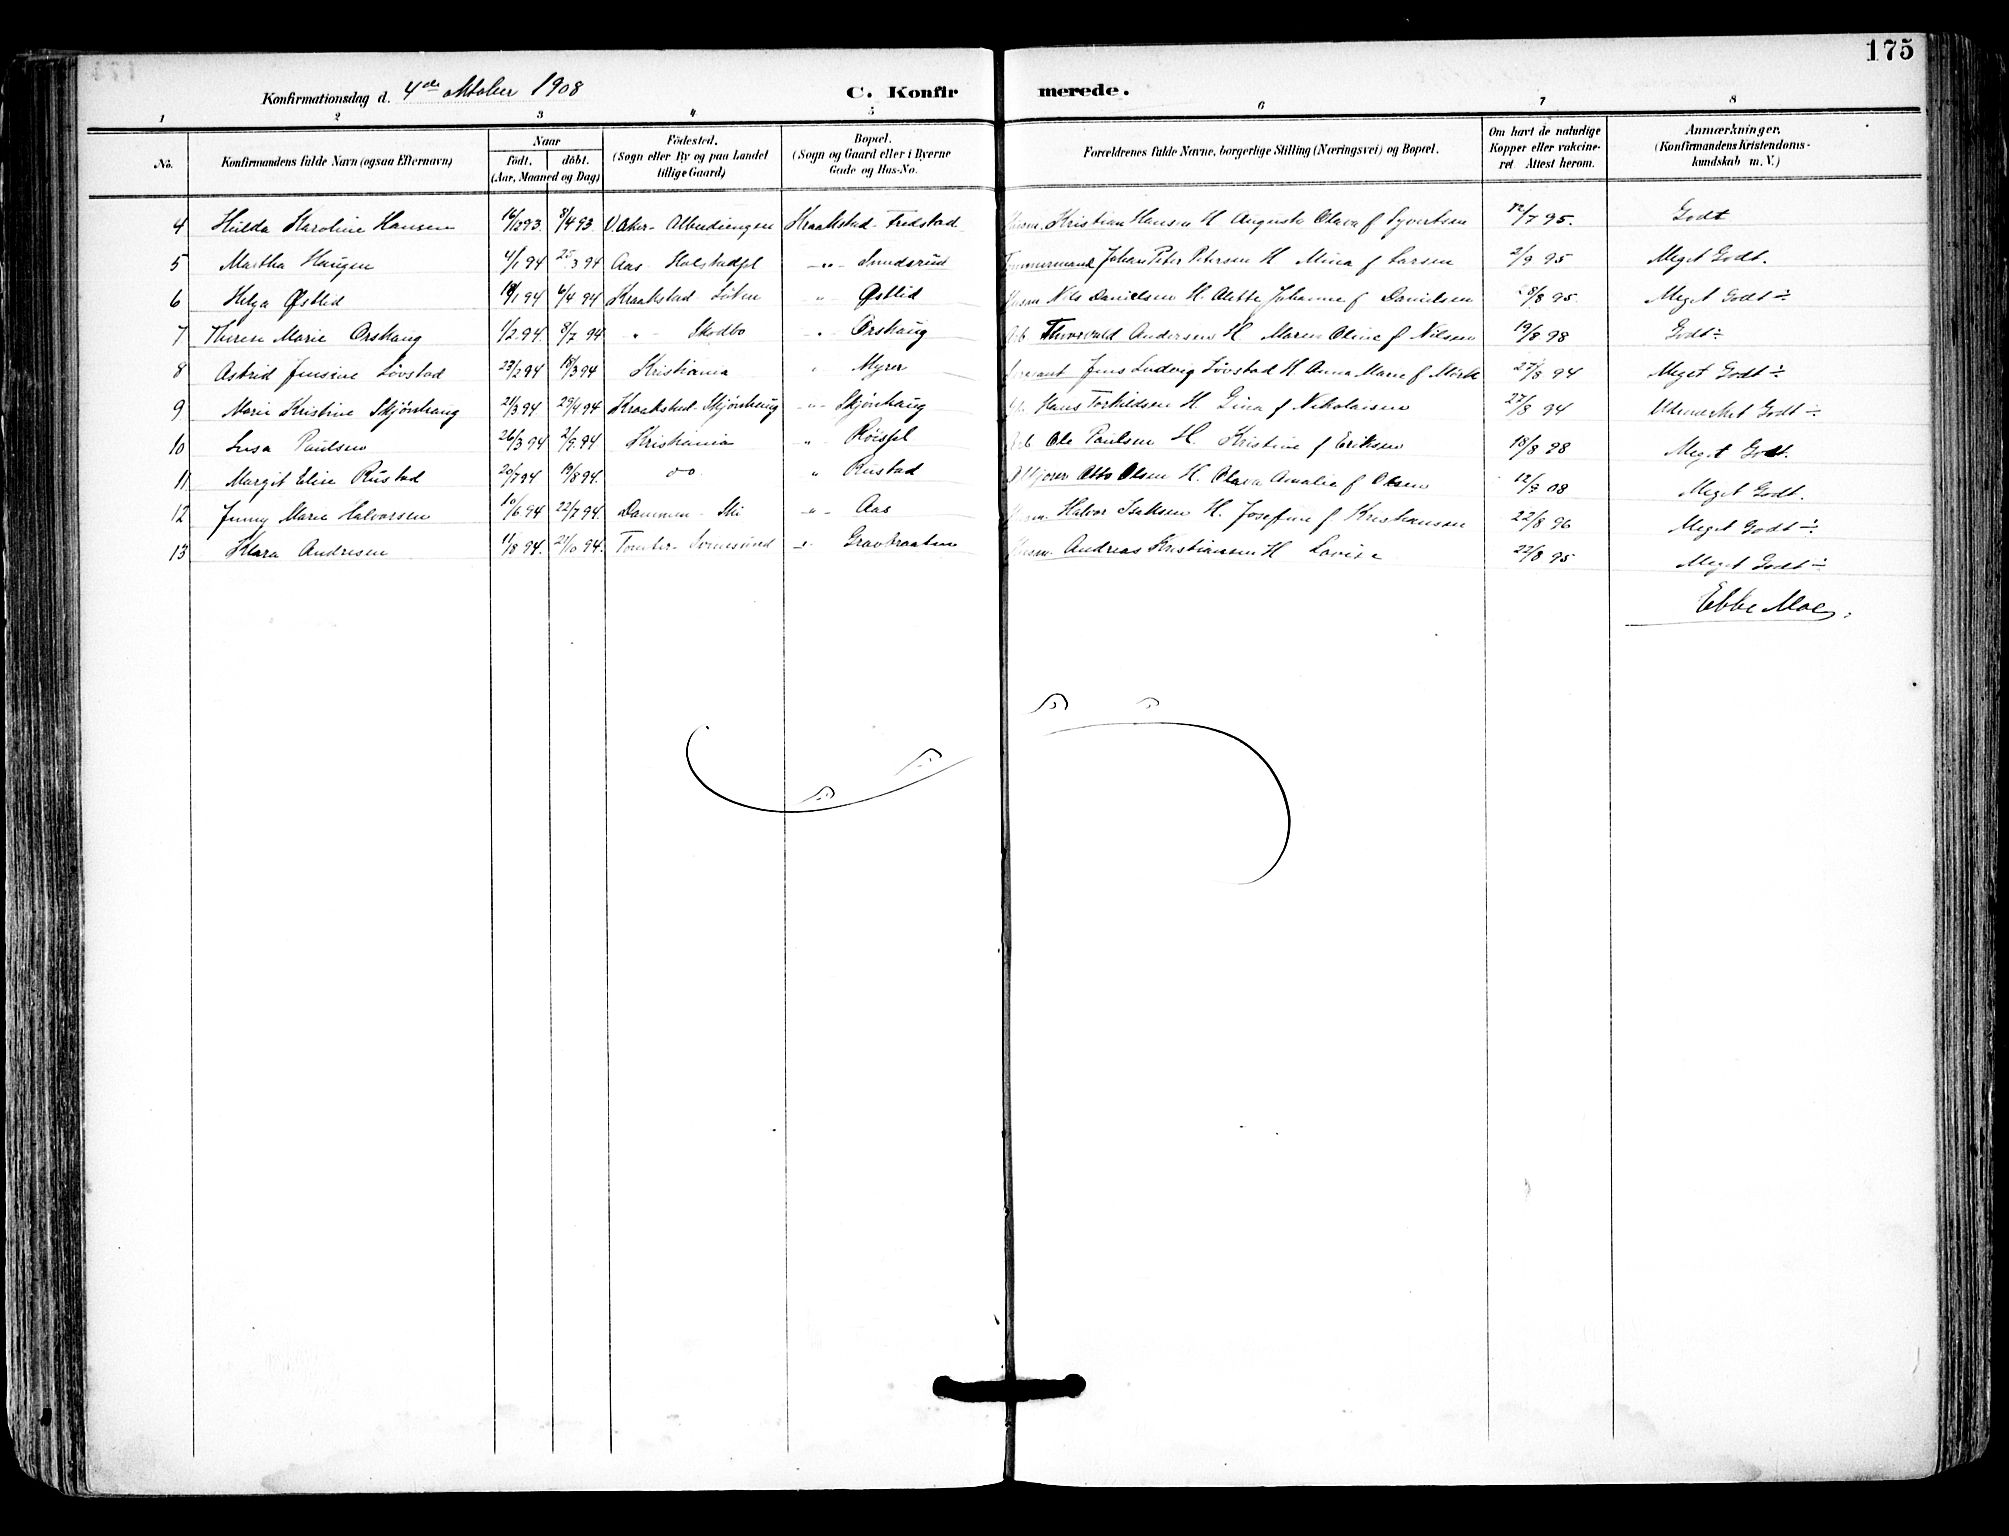 175
Konfirmationsdag d. 4de oktober 1908 C. Konfirmerede.
1 2 3 4 5 6 7 8
No. Konfirmandens fulde Navn (ogsaa Efternavn) Naar født. døbt. (Aar, Maaned og Dag) Fødested. (Sogn eller By og paa Landet tillige Gaard) Bopæl. (Sogn og Gaard eller i Byerne Gade og Hus-No. Forældrenes fulde Navne, borgerlige Stilling (Næringsvei) og Bopæl. Om havt de naturlige Kopper eller vaccineret. Attest herom. Anmærkninger. (Konfirmandens Kristendomskundskab m. V.)
4 Hilda Karoline Hansen 16/1293. 8/4 93. V. Aker - Kraakstad - Fredstad Kristian Hansen H Auguste Olava f Syvertsen 12/7 95. Godt
5 Martha Haugen 4/1 94 25/3 94 Aas - -"- Smedsrud Tømmermand Johan Peter Petersen H Mina f Larsen 2/9 95 Meget Godt.
6 Helga Østlid 94 6/4 94 Kraakstad " Østlid Nils Danielsen H. Alette Johanne f Danielsen 8/8 95. Meget Godt ÷
7 Therese Marie Orshaug 1/2 94. 8/7 94 " Skodbo " Orshaug Arb Thorvald Andersen H Maren Oline f Nilsen 19/8 98 Godt ÷
8 Astrid Jensine Løvstad 23/2 94 18/3 94 Kristiania " Myrer Jens Ludvig Løvstad H Anna Marie f Mørk 27/8 94 Meget Godt ÷
9 Marie Kristine Skjønhaug 21/3 94 29/4 94 Kraakstad - Skjønhaug " Skjønhaug Hans Torkildsen H. Gina f Nikolaisen 27/8 94 Udmerket Godt ÷
10 Paulsen 26/3 94 2/9 94 Kristiania " Arb Ole Paulsen H. Kristine f Eriksen 18/8 98 Meget Godt.
11 Margit Elise Rustad 20/7 94 19/8 94. " Rustad Otto Olsen H. Olava Amalia f Olsen 12/9 08 Meget Godt.
12 Jenny Marie Halvorsen 10/6 94 22/7 94. Dammen - Ski " Aas Halvor Isaksen H. Josefine f. Kristiansen 22/8 96 Meget Godt ÷
13 Klara Andresen 11/8 94. 21/10 94. Tomter - Andreas Kristiansen H Lovise 22/8 95 Meget Godt ÷
Ebbe Moe.